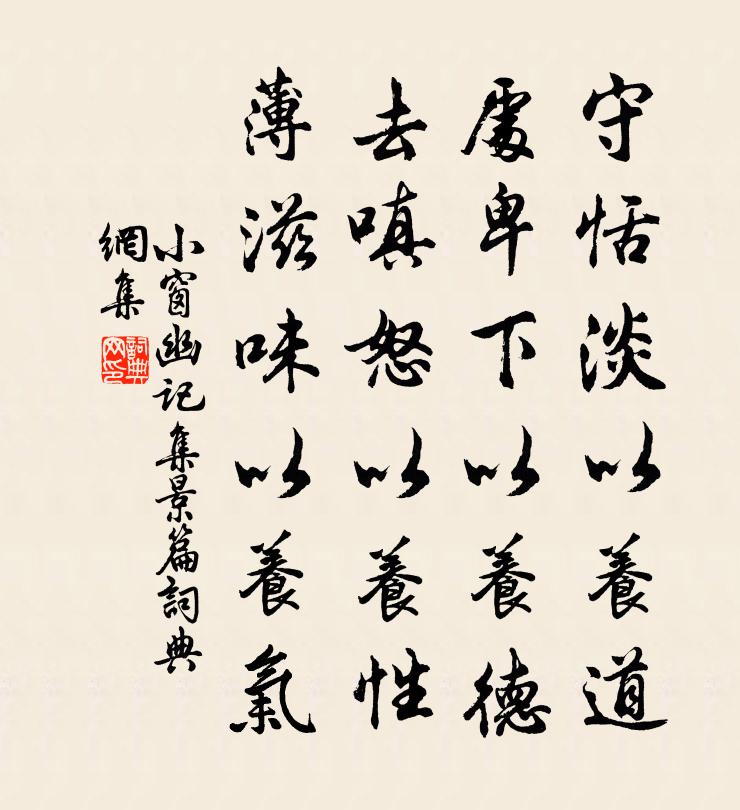 守恬淡以養道
處卑下以養德
去嗔怒以養性
薄滋味以養氣
小窗幽記集景篇詞典
網集
詞典
网印